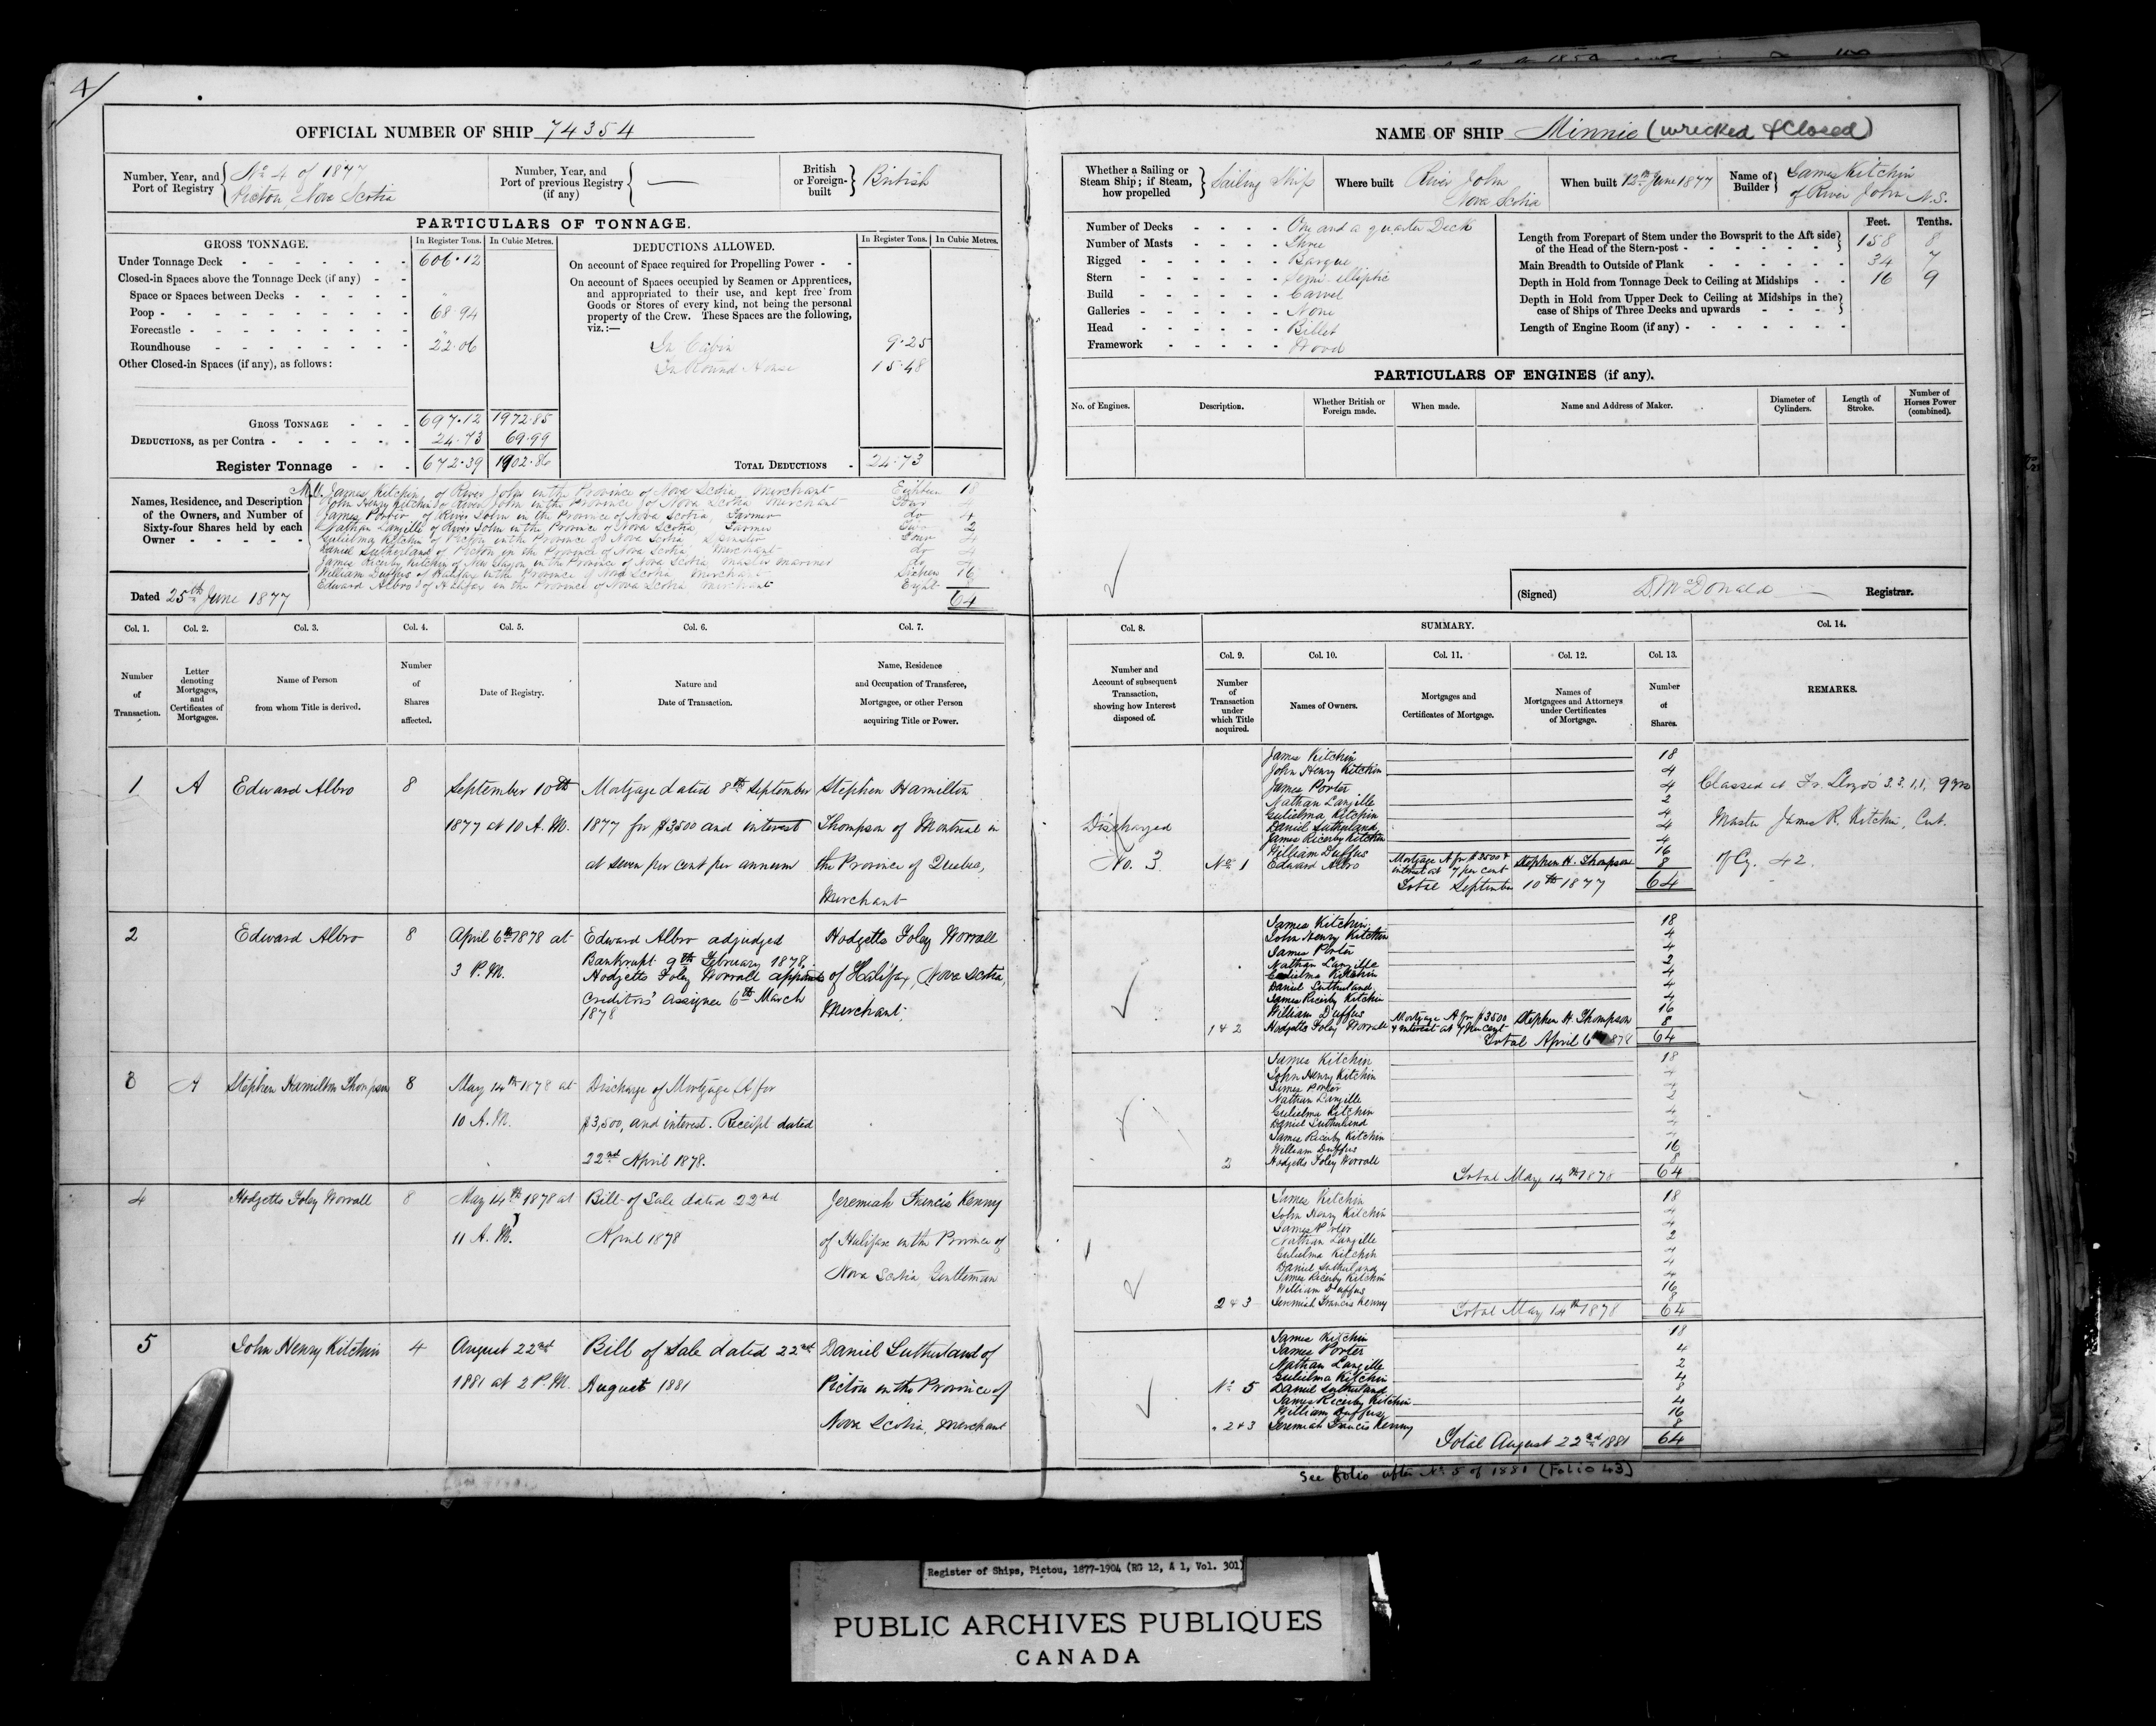 4/
OFFICIAL NUMBER OF SHIP 74354
Number, Year, and Port of Registry
No 4 of 1877
Pictou, Nova Scotia
Number, Year, and Port of previous Registry (if any)
—
British or Foreign-built
British
PARTICULARS OF TONNAGE.
GROSS TONNAGE. In Register Tons. In Cubic Metres.
Under Tonnage Deck 606.12
Closed-in Spaces above the Tonnage Deck (if any)
Space or Spaces between Decks "
Poop 68.94
Forecastle "
Roundhouse 22.06
Other Closed-in Spaces (if any), as follows:
GROSS TONNAGE 697.12 1972.85
DEDUCTIONS, as per Contra 24.73 69.99
Register Tonnage 672.39 1902.86
DEDUCTIONS ALLOWED. In Register Tons. In Cubic Metres.
On account of Space required for Propelling Power
On account of Spaces occupied by Seamen or Apprentices,
and appropriated to their use, and kept free from
Goods or Stores of every kind, not being the personal
property of the Crew. These Spaces are the following,
viz.:—
In Cabin 9.25
In Round House 15.48
TOTAL DEDUCTIONS 24.73
Names, Residence, and Description
of the Owners, and Number of
Sixty-four Shares held by each
Owner
James Kitchin of River John in the Province of Nova Scotia Merchant Eighteen 18
John Henry Kitchin of River John in the Province of Nova Scotia Merchant Four 4
James Porter of River John in the Province of Nova Scotia, Farmer do 4
Nathan Langille of River John in the Province of Nova Scotia, Farmer Two 2
Gulielma Kitchin of Pictou in the Province of Nova Scotia Spinster Four 4
Daniel Sutherland of Pictou in the Province of Nova Scotia, Merchant do 4
James Ricerby Kitchin of New Glasgow in the Province of Nova Scotia Master Mariner do 4
William Duffus of Halifax in the Province of Nova Scotia Merchant Sixteen 16
Edward Albro of Halifax in the Province of Nova Scotia Merchant Eight 8
64
Dated 25th June 1877
Col. 1. Col. 2. Col. 3. Col. 4. Col. 5. Col. 6. Col. 7.
Number of Transaction.
Letter denoting Mortgages, and Certificates of Mortgages.
Name of Person from whom Title is derived.
Number of Shares affected.
Date of Registry.
Nature and Date of Transaction.
Name, Residence and Occupation of Transferee, Mortgagee, or other Person acquiring Title or Power.
1 A Edward Albro 8 September 10th Mortgage dated 8th September Stephen Hamilton
1877 at 10 A.M. 1877 for $3500 and interest Thompson of Montreal in
at seven per cent per annum the Province of Quebec,
Merchant
2 Edward Albro 8 April 6th 1878 at Edward Albro adjudged Hodgetts Foley Worrall
3 P.M. Bankrupt 9th February 1878. of Halifax, Nova Scotia,
Hodgetts Foley Worrall appointed
Creditors' Assignee 6th March Merchant.
1878
3 A Stephen Hamilton Thompson 8 May 14th 1878 at Discharge of Mortgage A for
10 A.M. $3,500, and interest. Receipt dated
22nd April 1878.
4 Hodgetts Foley Worrall 8 May 14th 1878 at Bill of Sale dated 22nd Jeremiah Francis Kenny
11 A.M. April 1878 of Halifax in the Province of
Nova Scotia Gentleman
5 John Henry Kitchin 4 August 22nd Bill of Sale dated 22nd Daniel Sutherland of
1881 at 2 P.M. August 1881 Pictou in the Province of
Nova Scotia, Merchant
NAME OF SHIP Minnie (wrecked & Closed)
Whether a Sailing or Steam Ship; if Steam, how propelled
Sailing Ship
Where built River John Nova Scotia
When built 12th June 1877
Name of Builder
James Kitchin
of River John N.S.
Number of Decks One and a quarter Deck
Number of Masts Three
Rigged Barque
Stern Semi elliptic
Build Carvel
Galleries None
Head Billet
Framework Wood
Feet. Tenths.
Length from Forepart of Stem under the Bowsprit to the Aft side
of the Head of the Stern-post 158 8
Main Breadth to Outside of Plank 34 7
Depth in Hold from Tonnage Deck to Ceiling at Midships 16 9
Depth in Hold from Upper Deck to Ceiling at Midships in the
case of Ships of Three Decks and upwards
Length of Engine Room (if any)
PARTICULARS OF ENGINES (if any).
No. of Engines. Description. Whether British or Foreign made. When made. Name and Address of Maker. Diameter of Cylinders. Length of Stroke. Number of Horses Power (combined).
(Signed) D. McDonald Registrar.
Col. 8. SUMMARY. Col. 14.
Col. 9. Col. 10. Col. 11. Col. 12. Col. 13.
Number and Account of subsequent Transaction, showing how Interest disposed of.
Number of Transaction under which Title acquired.
Names of Owners.
Mortgages and Certificates of Mortgage.
Names of Mortgagees and Attorneys under Certificates of Mortgage.
Number of Shares.
REMARKS.
James Kitchin 18
John Henry Kitchin 4
James Porter 4
Nathan Langille 2
Gulielma Kitchin 4
Daniel Sutherland 4
James Ricerby Kitchin 4
William Duffus 16
Discharged
No. 3
No 1 Edward Albro Mortgage A for $3500 & interest at 7 per cent Stephen H. Thompson 8
Total September 10th 1877 64
Classed at Fr. Lloyds 3.3. 1.1,
Master James R. Kitchin, Cert.
of Cy. 42.
James Kitchin 18
John Henry Kitchin 4
James Porter 4
Nathan Langille 2
Gulielma Kitchin 4
Daniel Sutherland 4
James Ricerby Kitchin 4
William Duffus 16
1 & 2 Hodgetts Foley Worrall Mortgage A for $3500 & interest at 7 per cent Stephen H. Thompson 8
Total April 6th 1878 64
James Kitchin 18
John Henry Kitchin 4
James Porter 4
Nathan Langille 2
Gulielma Kitchin 4
Daniel Sutherland 4
James Ricerby Kitchin 4
William Duffus 16
2 Hodgetts Foley Worrall 8
Total May 14th 1878 64
James Kitchin 18
John Henry Kitchin 4
James Porter 4
Nathan Langille 2
Gulielma Kitchin 4
Daniel Sutherland 4
James Ricerby Kitchin 4
William Duffus 16
2 & 3 Jeremiah Francis Kenny 8
Total May 14th 1878 64
James Kitchin 18
James Porter 4
Nathan Langille 2
Gulielma Kitchin 4
No 5 Daniel Sutherland 8
James Ricerby Kitchin 4
William Duffus 16
" 2 & 3 Jeremiah Francis Kenny 8
Total August 22nd 1881 64
See folio after No 5 of 1881 (Folio 43)
Register of Ships, Pictou, 1877-1904 (RG 12, A 1, Vol. 301)
PUBLIC ARCHIVES PUBLIQUES
CANADA